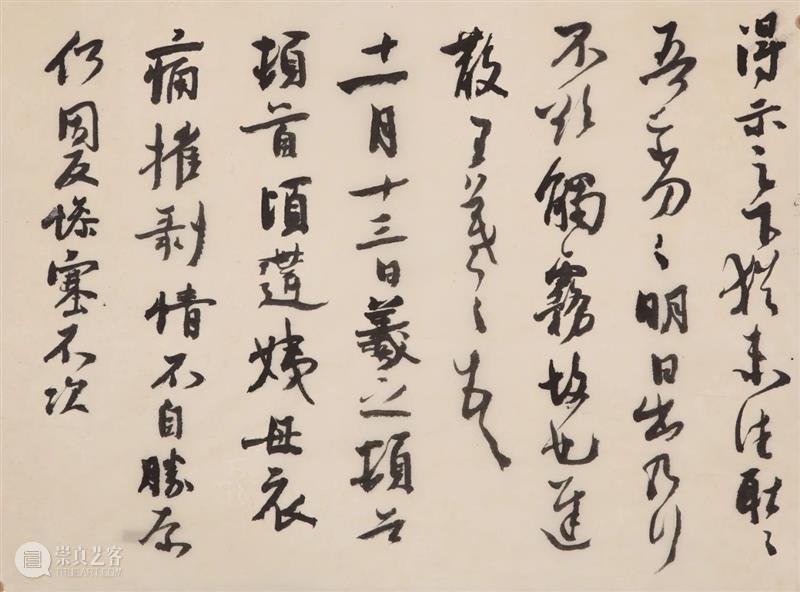 得示足下猶未佳耿〻
吾亦劣〻明日出乃行
不欲觸霧故也遲
散王羲之頓首
十一月十三日羲之頓首
頓首頃遘姨母哀
痛摧剝情不自勝奈
何因反慘塞不次
崇真艺客
TRUEART.COM